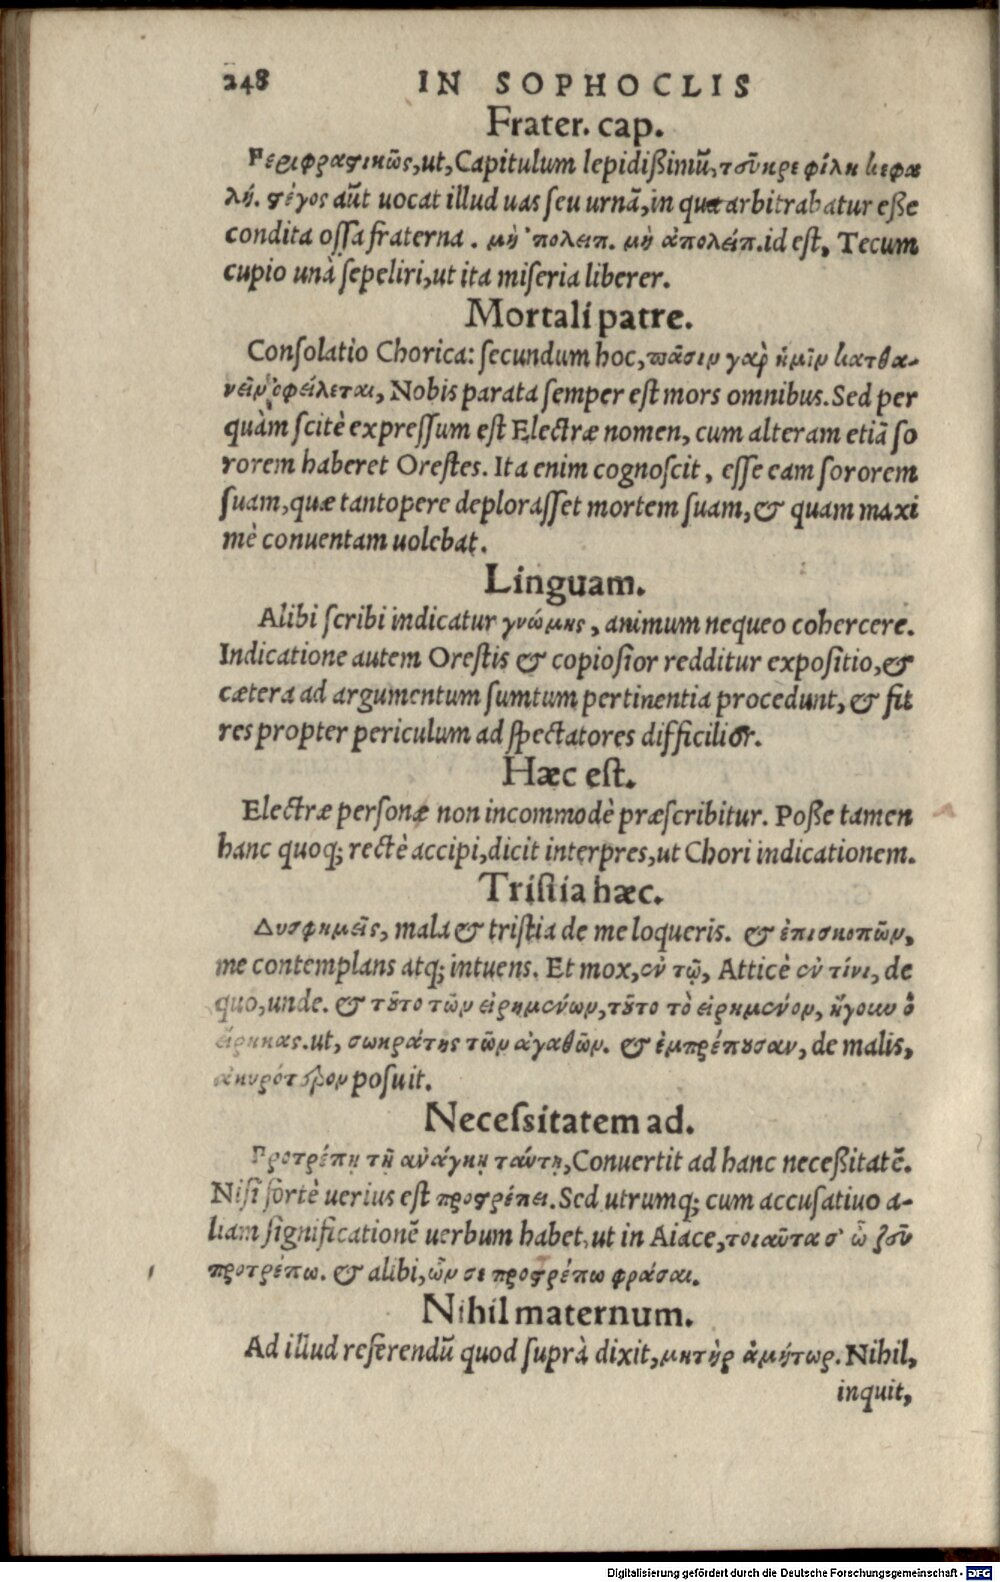 248 IN SOPHOCLIS
Frater. cap.
Περιφραστικῶς, ut, Capitulum lepidißimũ, τοὔνκρε φίλη κεφα
λή. στέγος aũt uocat illud uas seu urnã, in qua arbitrabatur eße
condita ossa fraterna. μὴ ’πολειπ. μὴ ἀπολείπ. id est, Tecum
cupio unà sepeliri, ut ita miseria liberer.
Mortali patre.
Consolatio Chorica: secundum hoc, πᾶσιν γὰρ ἡμῖν κατθα-
νεῖν ὀφείλεται, Nobis parata semper est mors omnibus. Sed per
quàm scitè expressum est Electræ nomen, cum alteram etiã so
rorem haberet Orestes. Ita enim cognoscit, esse eam sororem
suam, quæ tantopere deplorasset mortem suam, & quam maxi
mè conuentam uolebat.
Linguam.
Alibi scribi indicatur γνώμης, animum nequeo cohercere.
Indicatione autem Orestis & copiosior redditur expositio, &
cætera ad argumentum sumtum pertinentia procedunt, & fit
res propter periculum ad spectatores difficilior.
Hæc est.
Electræ personæ non incommodè præscribitur. Poße tamen
hanc quoq; rectè accipi, dicit interpres, ut Chori indicationem.
Tristia hæc.
Δυσφημεῖς, mala & tristia de me loqueris. & ἐπισκοπῶν,
me contemplans atq; intuens. Et mox, ἐν τῷ, Atticè ἐν τίνι, de
quo, unde. & τοῦτο τῶν εἰρημένων, τοῦτο τὸ εἰρημένον, ἤγουν ὃ
εἴρηκας. ut, σωκράτης τῶν ἀγαθῶν. & ἐμπρέπουσαν, de malis,
ἀκυρότερον posuit.
Necessitatem ad.
Προτρέπῃ τῇ ἀνάγκῃ ταύτῃ, Conuertit ad hanc neceßitatẽ.
Nisi fortè uerius est προστρέπει. Sed utrumq; cum accusatiuo a-
liam significationẽ uerbum habet, ut in Aiace, τοιαῦτα σ’ ὦ ζεῦ
προτρέπω. & alibi, ὧν σε προστρέπω φράσαι.
Nihil maternum.
Ad illud referendũ quod suprà dixit, μητὴρ ἀμήτωρ. Nihil,
inquit,
Digitalisierung gefördert durch die Deutsche Forschungsgemeinschaft - DFG